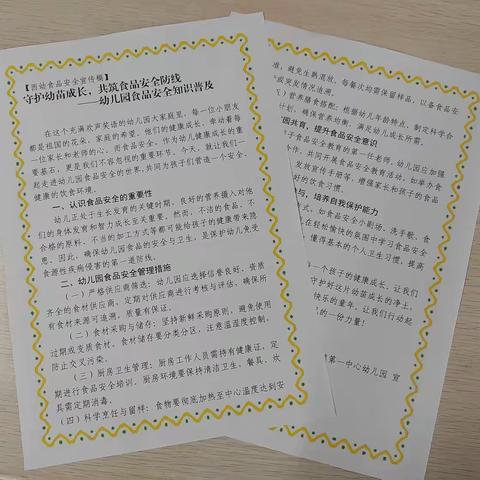 【西幼食品安全宣传稿】
守护幼苗成长，共筑食品安全防线
——幼儿园食品安全知识普及
在这个充满欢声笑语的幼儿园大家庭里，每一位小朋友
都是祖国的花朵、家庭的希望。他们的健康成长，牵动着每
一位家长和老师的心。而食品安全，作为幼儿健康成长的重
要基石，更是我们不容忽视的重要环节。今天，就让我们一
起走进幼儿园食品安全的世界，共同为孩子们营造一个安全、
健康的饮食环境。
一、认识食品安全的重要性
幼儿正处于生长发育的关键时期，良好的营养摄入对他
们的身体发育和智力成长至关重要。然而，不洁的食品、不
合格的原料、不当的加工方式等都可能给孩子的健康带来隐
患。因此，确保幼儿园食品的安全与卫生，是保护幼儿免受
食源性疾病侵害的第一道防线。
二、幼儿园食品安全管理措施
（一）严格供应商筛选：幼儿园应选择信誉良好、资质
齐全的食材供应商，定期对供应商进行考核与评估，确保所
有食材来源可追溯，质量有保证。
（二）食材采购与储存：坚持新鲜采购原则，避免使用
过期或变质食材。食材储存要分类分区，注意温湿度控制，
防止交叉污染。
（三）厨房卫生管理：厨房工作人员需持有健康证，定
期进行食品安全培训。厨房环境要保持清洁卫生，餐具、炊
具需定期消毒。
（四）科学烹饪与留样：食物要彻底加热至中心温度达到安
准，避免生熟混放。每餐次均需保留样品，以备食品安
或突发情况追溯。
）营养膳食搭配：根据幼儿年龄特点，制定科学合
计划，确保营养均衡，满足幼儿成长所需。
园共育，提升食品安全意识
子食品安全教育的第一任老师，幼儿园应加强
合作，共同开展食品安全教育活动，如举办食
发放宣传手册等，增强家长和孩子的食品
好的饮食习惯。
与，培养自我保护能力
式，如食品安全小剧场、洗手歌、食
在轻松愉快的氛围中学习食品安全
懂得基本的个人卫生习惯，提高
一个孩子的健康成长，让我们
守护好这片幼苗成长的净土，
快乐的童年，让我们行动起
的一份力量！
第一中心幼儿园 宣